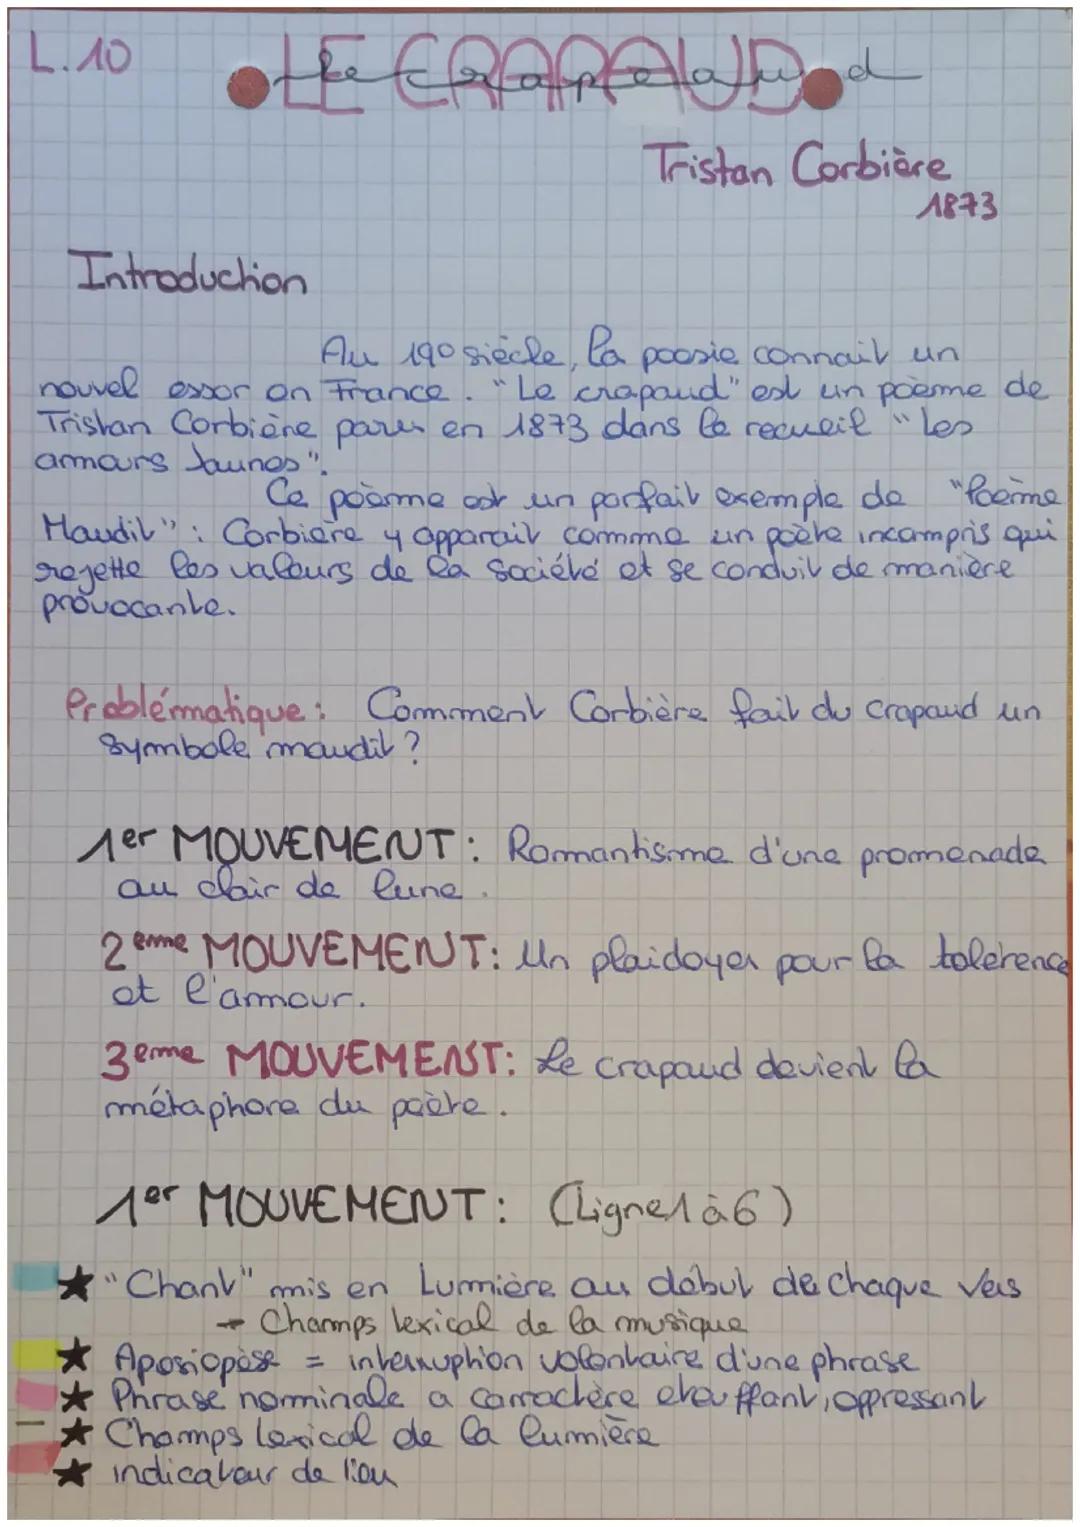 L.10
LE CRAPAUD
Le Crapaud
Tristan Corbière
1873
Introduction
Au 19e siècle, la poésie connait un
nouvel essor en France. "Le crapaud" est un poème de
Tristan Corbière paru en 1873 dans le recueil "Les
amours Jaunes".
Ce poème est un parfait exemple de "Poème
Maudit" : Corbière y apparait comme un poète incompris qui
rejette les valeurs de la société et se conduit de manière
provocante.
Problématique : Comment Corbière fait du crapaud un
symbole maudit ?
1er MOUVEMENT : Romantisme d'une promenade
au clair de lune.
2eme MOUVEMENT : Un plaidoyer pour la tolérence
et l'amour.
3eme MOUVEMENT : Le crapaud devient la
métaphore du poète.
1er MOUVEMENT : (Ligne 1 à 6)
★ "Chant" mis en Lumière au début de chaque Vers
→ Champs lexical de la musique
★ Aposiopèse = interruption volontaire d'une phrase
★ Phrase nominale a carractère etouffant, oppressant
★ Champs lexical de la lumière
★ indicateur de lieu